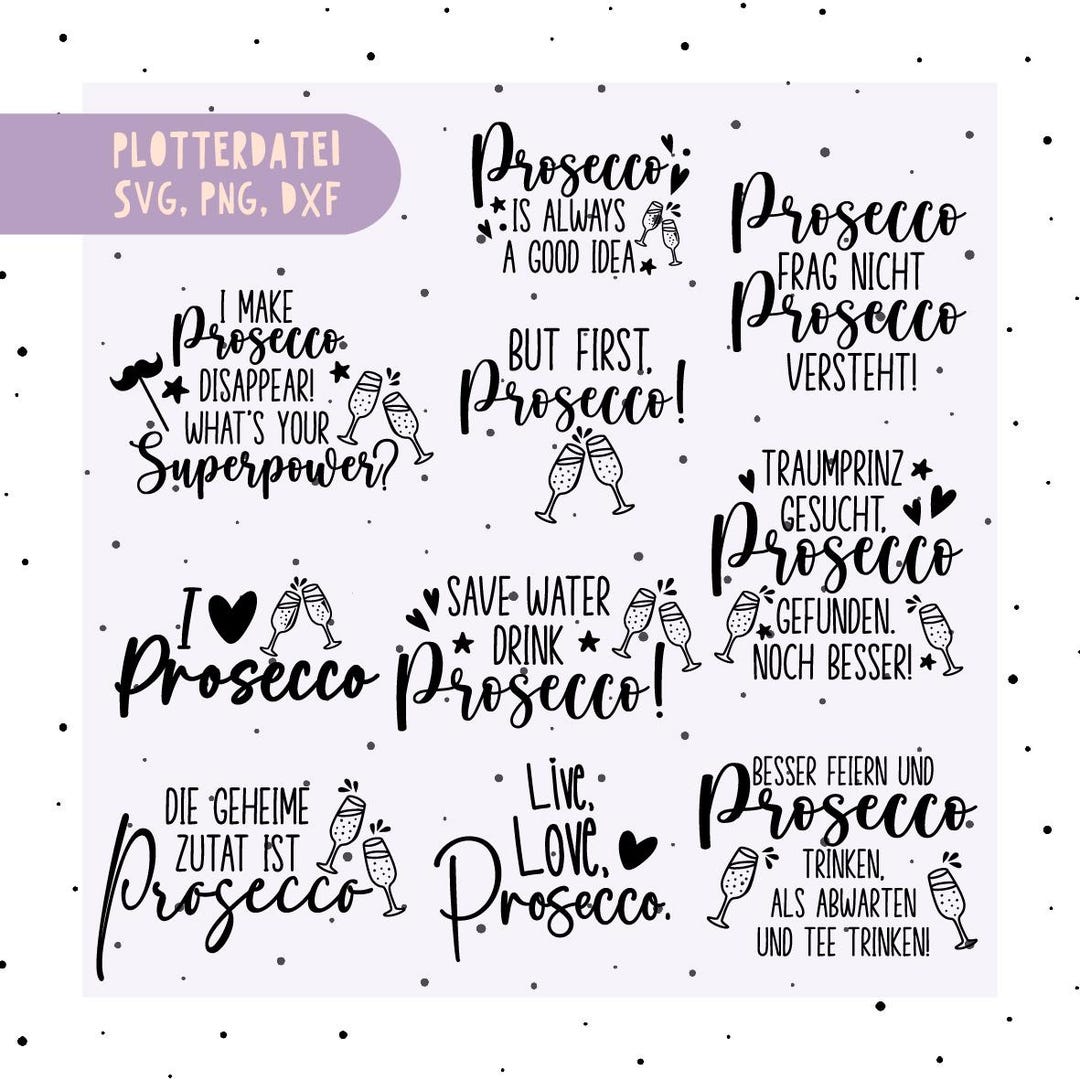 PLOTTERDATEI
SVG, PNG, DXF
Prosecco
IS ALWAYS
A GOOD IDEA
Prosecco
FRAG NICHT
Prosecco
VERSTEHT!
I MAKE
Prosecco
DISAPPEAR!
WHAT'S YOUR
Superpower?
BUT FIRST,
Prosecco!
TRAUMPRINZ
GESUCHT,
Prosecco
GEFUNDEN.
NOCH BESSER!
I
Prosecco
SAVE WATER
DRINK
Prosecco!
DIE GEHEIME
ZUTAT IST
Prosecco
Live,
LOVE,
Prosecco.
BESSER FEIERN UND
Prosecco
TRINKEN,
ALS ABWARTEN
UND TEE TRINKEN!